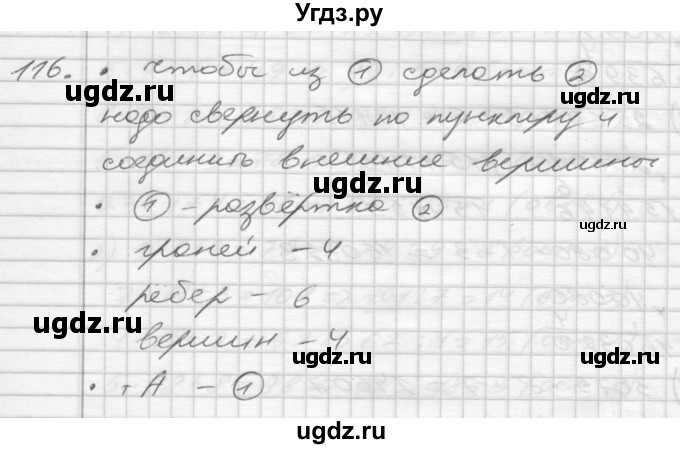 Угдз.ру
116. • чтобы из ① сделать ②
ugdz.ru ugdz.ru
надо свернуть по пунктиру и
соединить внешние вершины
ugdz.ru
• ① - развёртка ②
ugdz.ru
• граней - 4
ugdz.ru
рёбер - 6
ugdz.ru
вершин - 4
ugdz.ru
• т А - ①
ugdz.ru
ugdz.ru